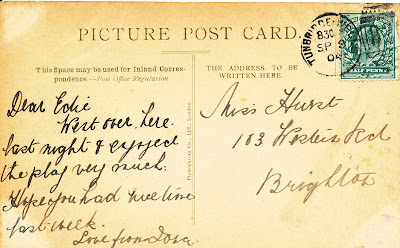 PICTURE POST CARD.
This Space may be used for Inland Corres-
pondence.—Post Office Regulation
THE ADDRESS TO BE
WRITTEN HERE.
TUNBRIDGE
830
SP
04
HALF PENNY
Dear Edie
Went over here
last night & enjoyed
the play very much.
Hope you had nice time
last week.
Love from
Miss Hurst
103 Western Rd
Brighton